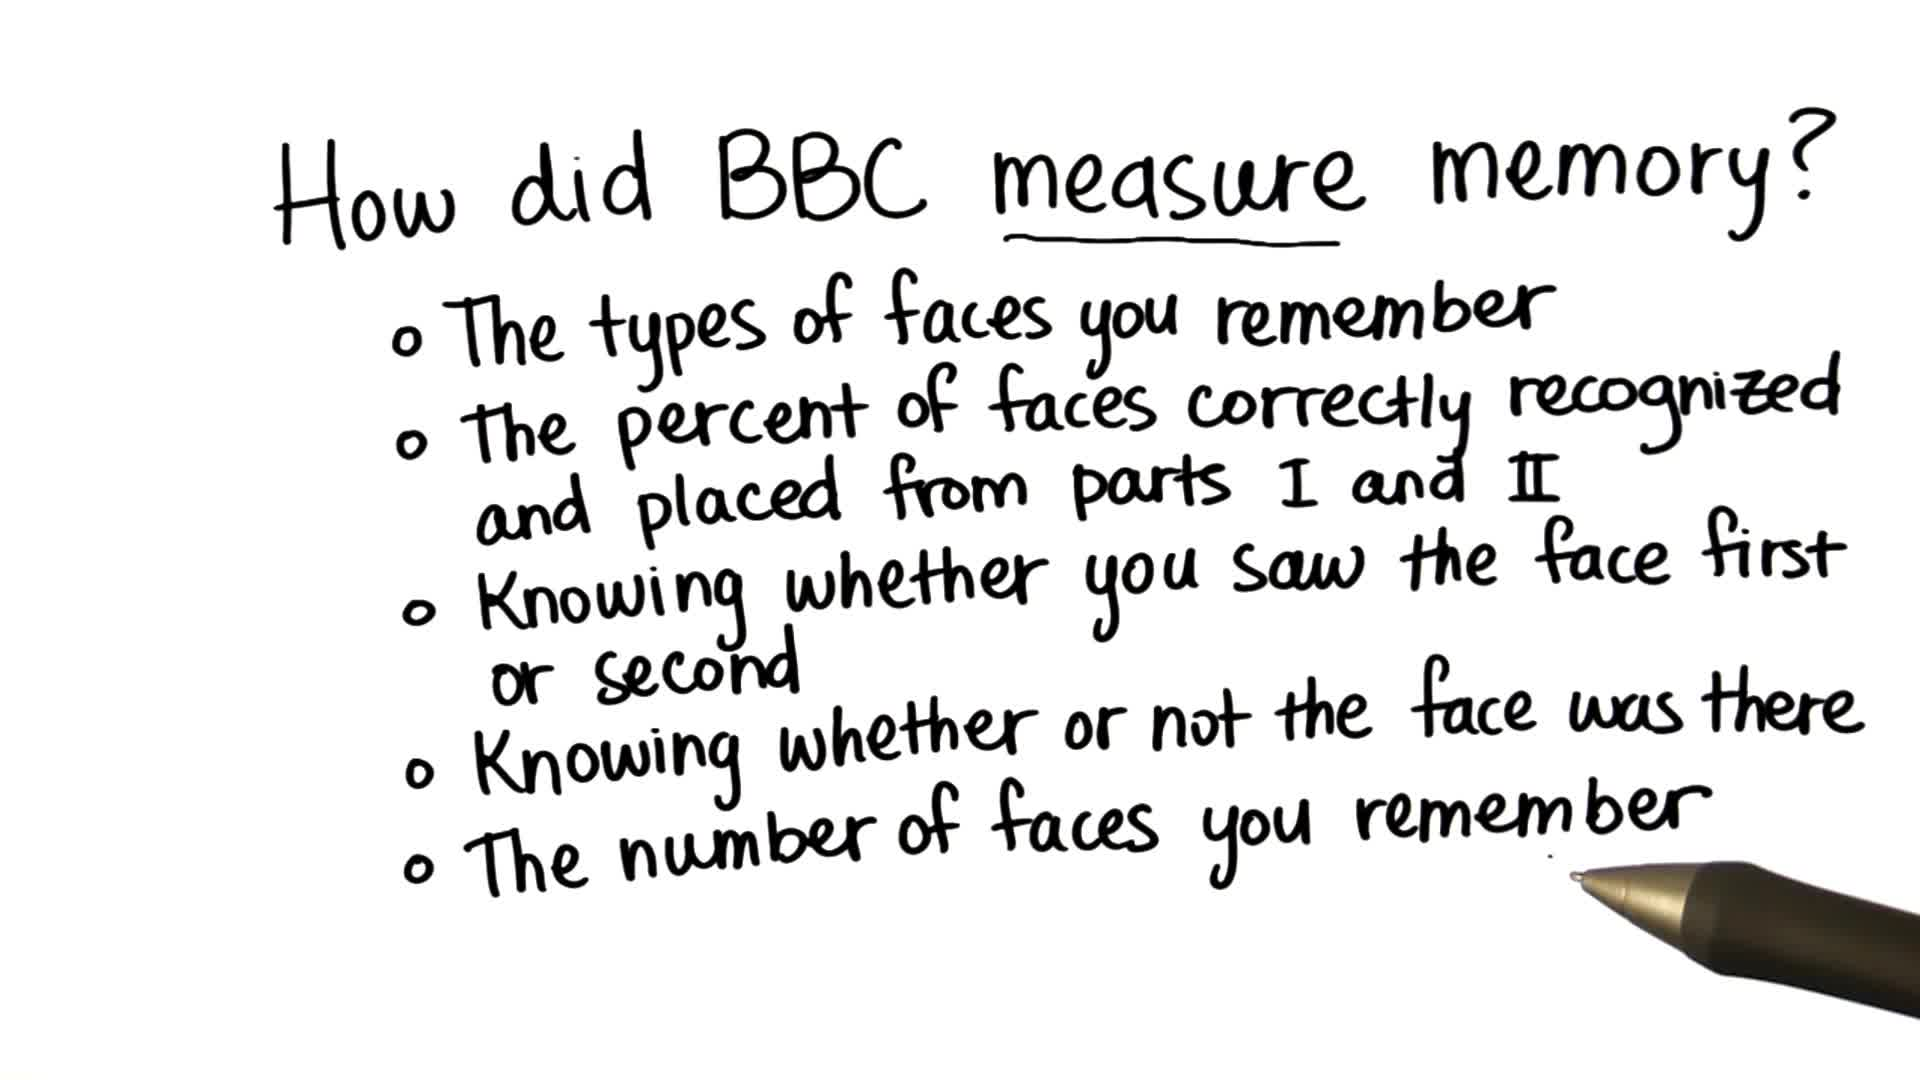 How did BBC measure memory?
o The types of faces you remember
o The percent of faces correctly recognized
and placed from parts I and II
o Knowing whether you saw the face first
or second
o Knowing whether or not the face was there
o The number of faces you remember